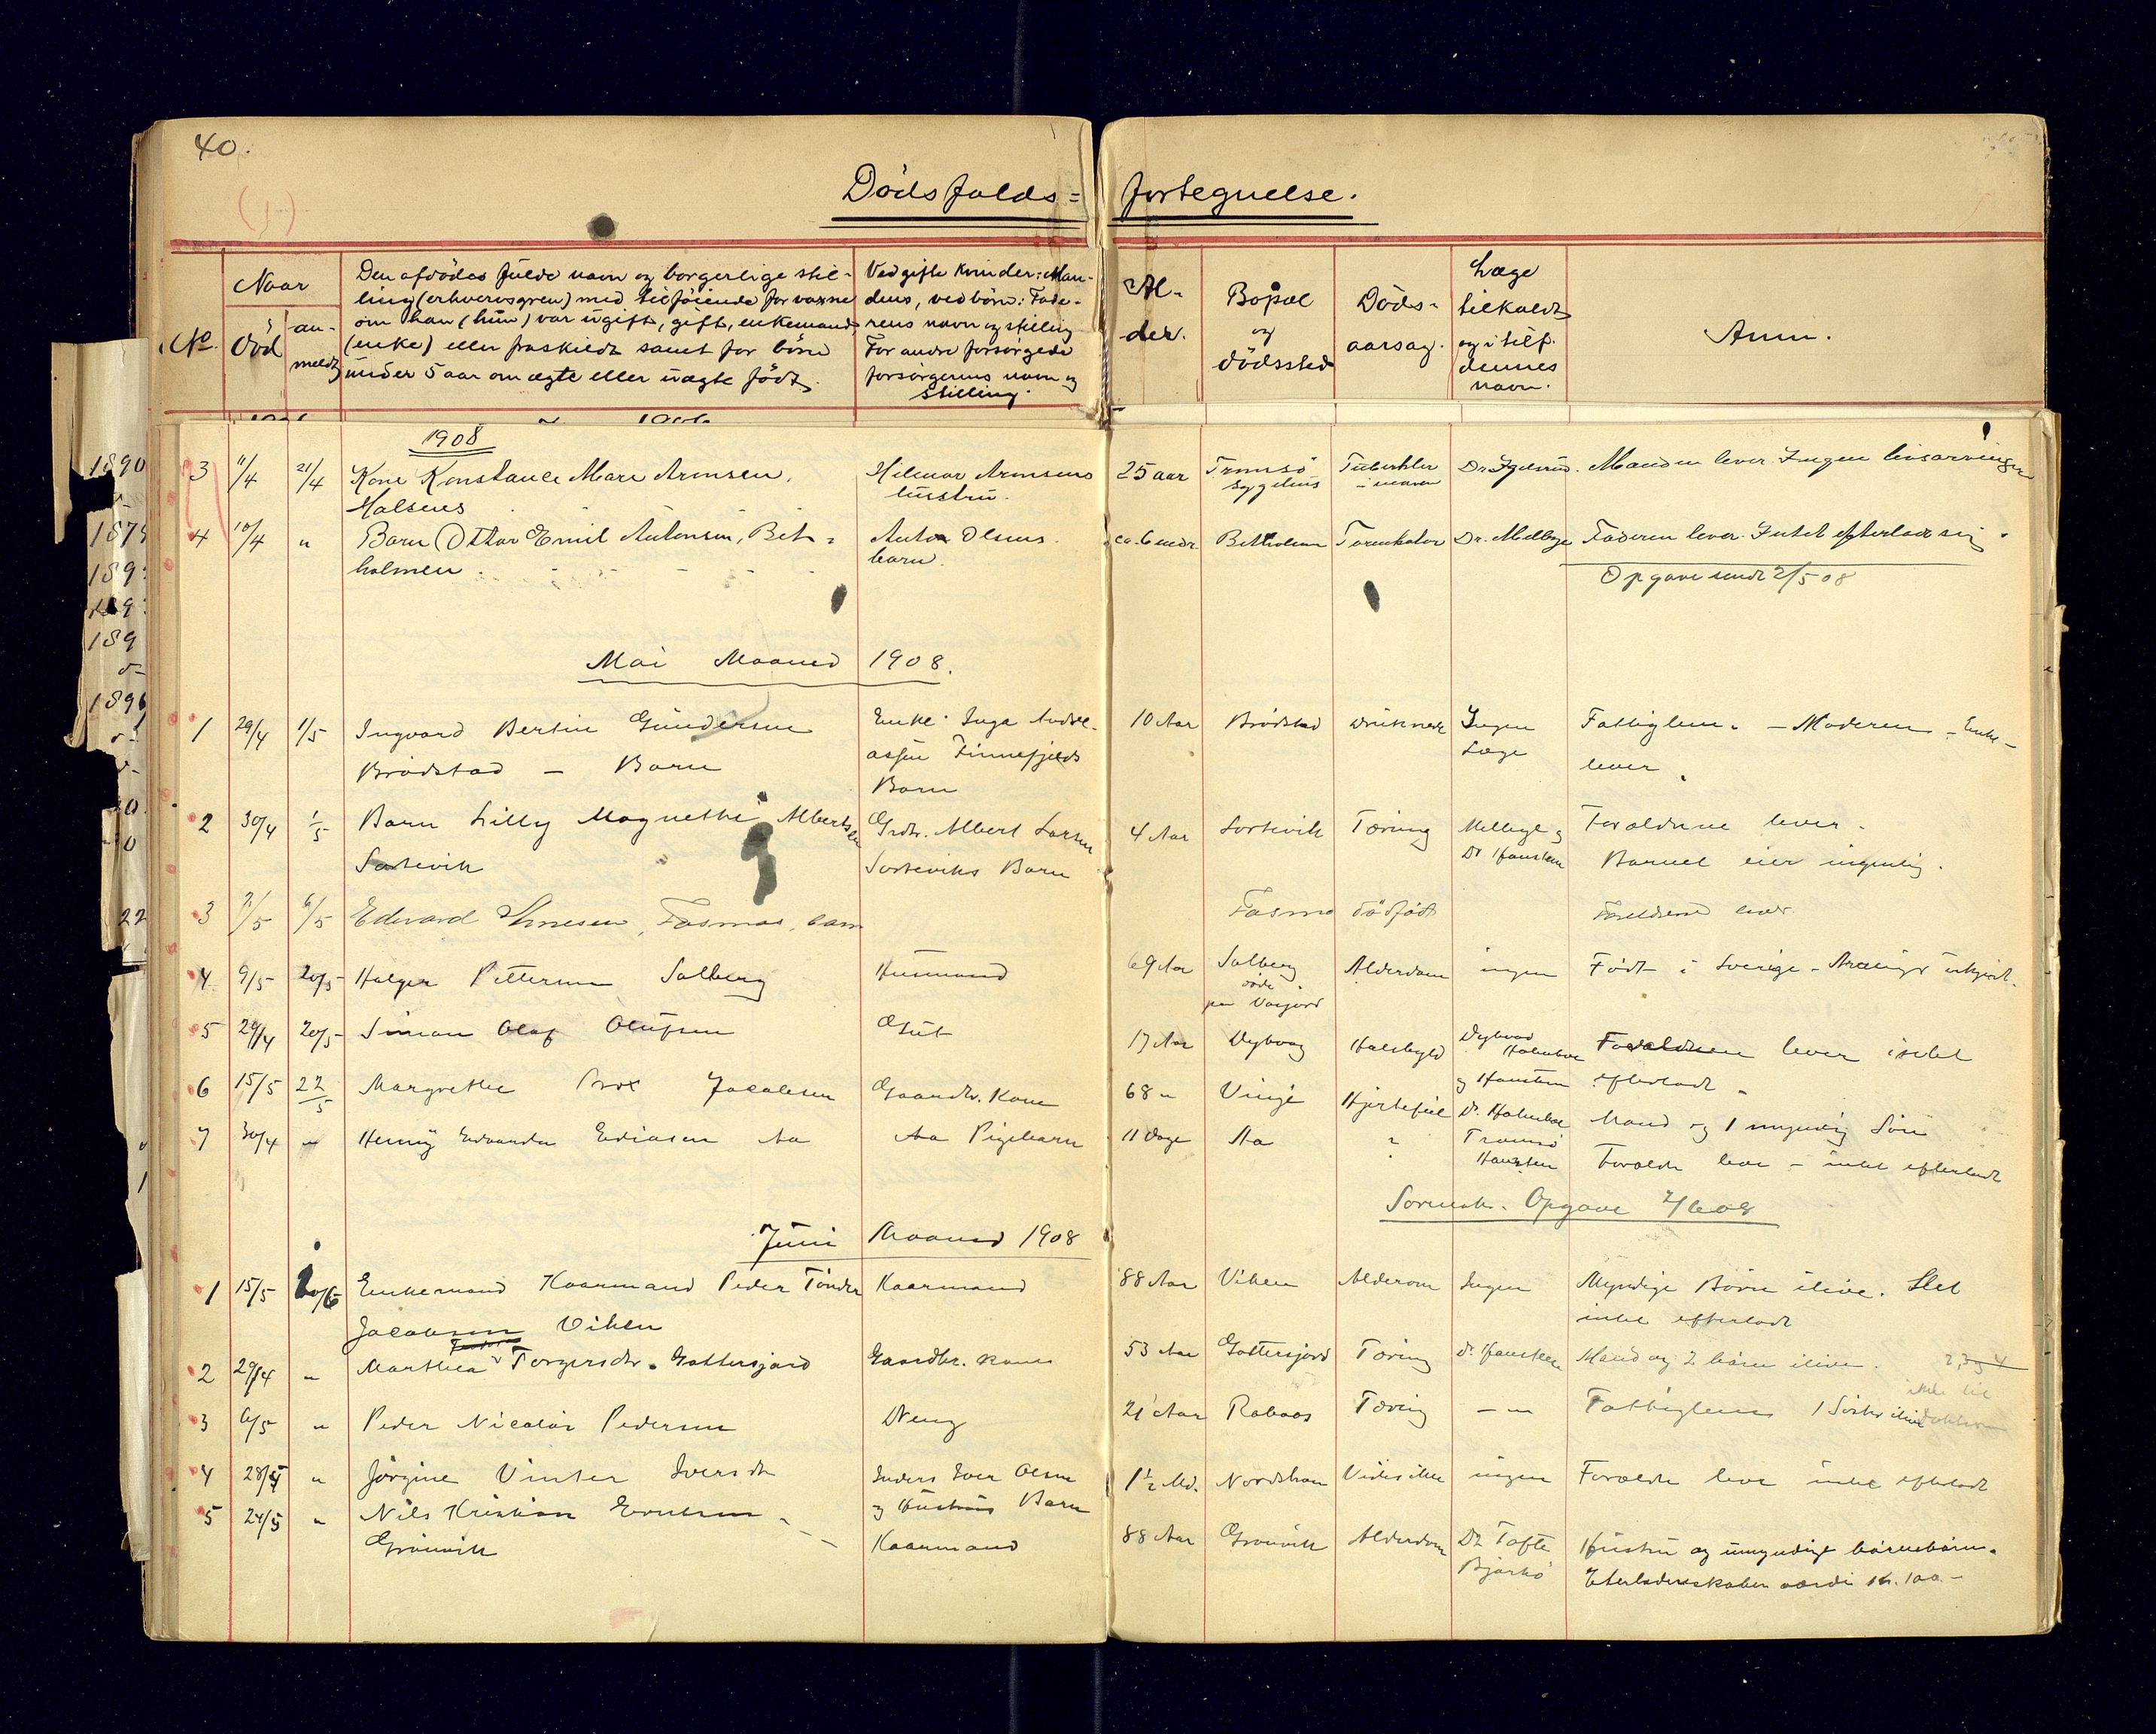 40.
Dödsfalds=fortegnelse.
No.
Naar
död
an-
meldt
Den afdödes fulde navn og borgerlige stil-
ling (erhvervsgren) med tilföiende for voxne
om han (hun) var ugift, gift, enkemand
(enke) eller fraskildt samt for börn
under 5 aar om ægte eller uægte födt.
Ved gifte kvinder: Man-
dens, ved börn: Fade-
rens navn og stilling
For andre forsörgede
forsörgerens navn og
stilling.
Al-
der.
Bopæl
og
dödssted
Döds-
aarsag.
Læge
tilkaldt
og i tilf.
dennes
navn.
Anm.
1908
3 11/4 21/4 Kone Konstance Mare Arnsen, Hilmar Arnsens 25 aar Tromsö Tuberkler Manden lever. Ingen livsarvinger
Malsnes hustru. sygehus i maven
4 10/4 " Barn Ottar Emil Antonsen, Bet= Anton Olsens ca. 6 mdr. Betholmen Tarmkatar Dr. Mellbye Faderen lever. Intet efterladt sig.
holmen. barn.
Opgave sendt 2/5 08
Mai Maaned 1908.
1 29/4 1/5 Ingvard Bertin Gundersen Enke Inga Andre- 10 Aar Brödstad druknede Ingen Fattiglem. - Moderen - Enke -
Brödstad - Barn assen Finnefjelds Læge lever.
Barn
2 30/4 1/5 Barn Lilly Magnethe Albertsen Grdbr. Albert Larsen 4 Aar Sortevik Tæring Mellbye og Forældrene lever.
Sortevik Sorteviks Barn Dr Hansteen Barnet eier ingenting.
3 6/5 Edvard Fosmos, barn Fosmo dödfödt Foreldrene lever.
4 9/5 20/5 Holger Pettersen Solberg Husmand 69 Aar Solberg Alderdom ingen Födt i Sverige -
döde
paa
5 29/4 20/5 Simon Olaf Olufsen Gut 17 Aar Dybvaag Halsbyld Forældrene lever intet
og Hansteen efterladt.
6 15/5 22/5 Margrethe Brox Jacobsen Gaardbr. Kone 68 " Vinje Hjertefeil Dr. Holmboe Mand og 1 umyndig Sön
7 30/4 " Henny Edvarda Ediasen Aa Aa Pigebarn 11 Dage Aa " Tromsö
Hansteen Foreldre lever - intet efterladt
Sorensk. Opgave 2/6 08
Juni Maaned 1908
1 15/5 20/6 Enkemand Kaarmand Peder Tönder Kaarmand 88 Aar Viken Alderdom Ingen Myndige Börn ilive. Slet
Jacobsen Viken intet efterladt
2 29/4 " Marthea Torgersdtr. Gottersjord Gaardbr. kone 53 Aar Gottersjord Tæring Dr. Hansteen Mand og 2 börn ilive. 2, 3 og 4
ikke til
3 6/5 " Peder Nicolai Pedersen Dreng 21 Aar Rabaas Tæring - " Fattiglem 1 Söster ilive
4 28/4 " Jörgine Vinter Iversdtr Inders Iver Olsen 1½ Md. Nordskau Vides ikke ingen Forældre lever intet efterladt
og Hustrus Barn
5 24/5 " Nils Kristian Evensen - Kaarmand 88 Aar Grönvik Alderdom Dr. Tofte Hustru og umyndige börnebörn.
Grönvik Bjarkö Efterladenskaber værdi Kr. 100.-
1890
1896
22